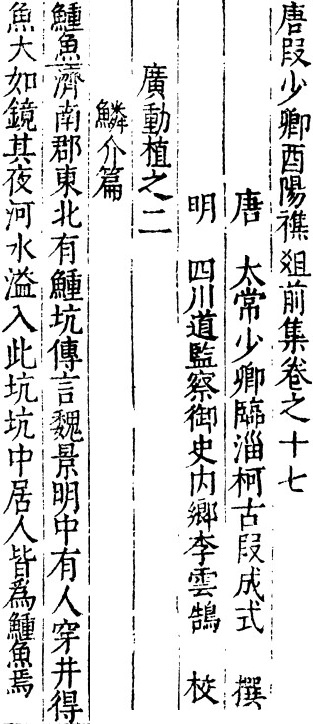 唐段少卿酉陽襍俎前集卷之十七
唐 太常少卿臨淄柯古段成式 撰
明 四川道監察御史内鄉李雲鵠 校
廣動植之二
鱗介篇
鱣魚濟南郡東北有鱣坑傳言魏景明中有人穿井得
魚大如鏡其夜河水溢入此坑坑中居人皆爲鱣魚焉